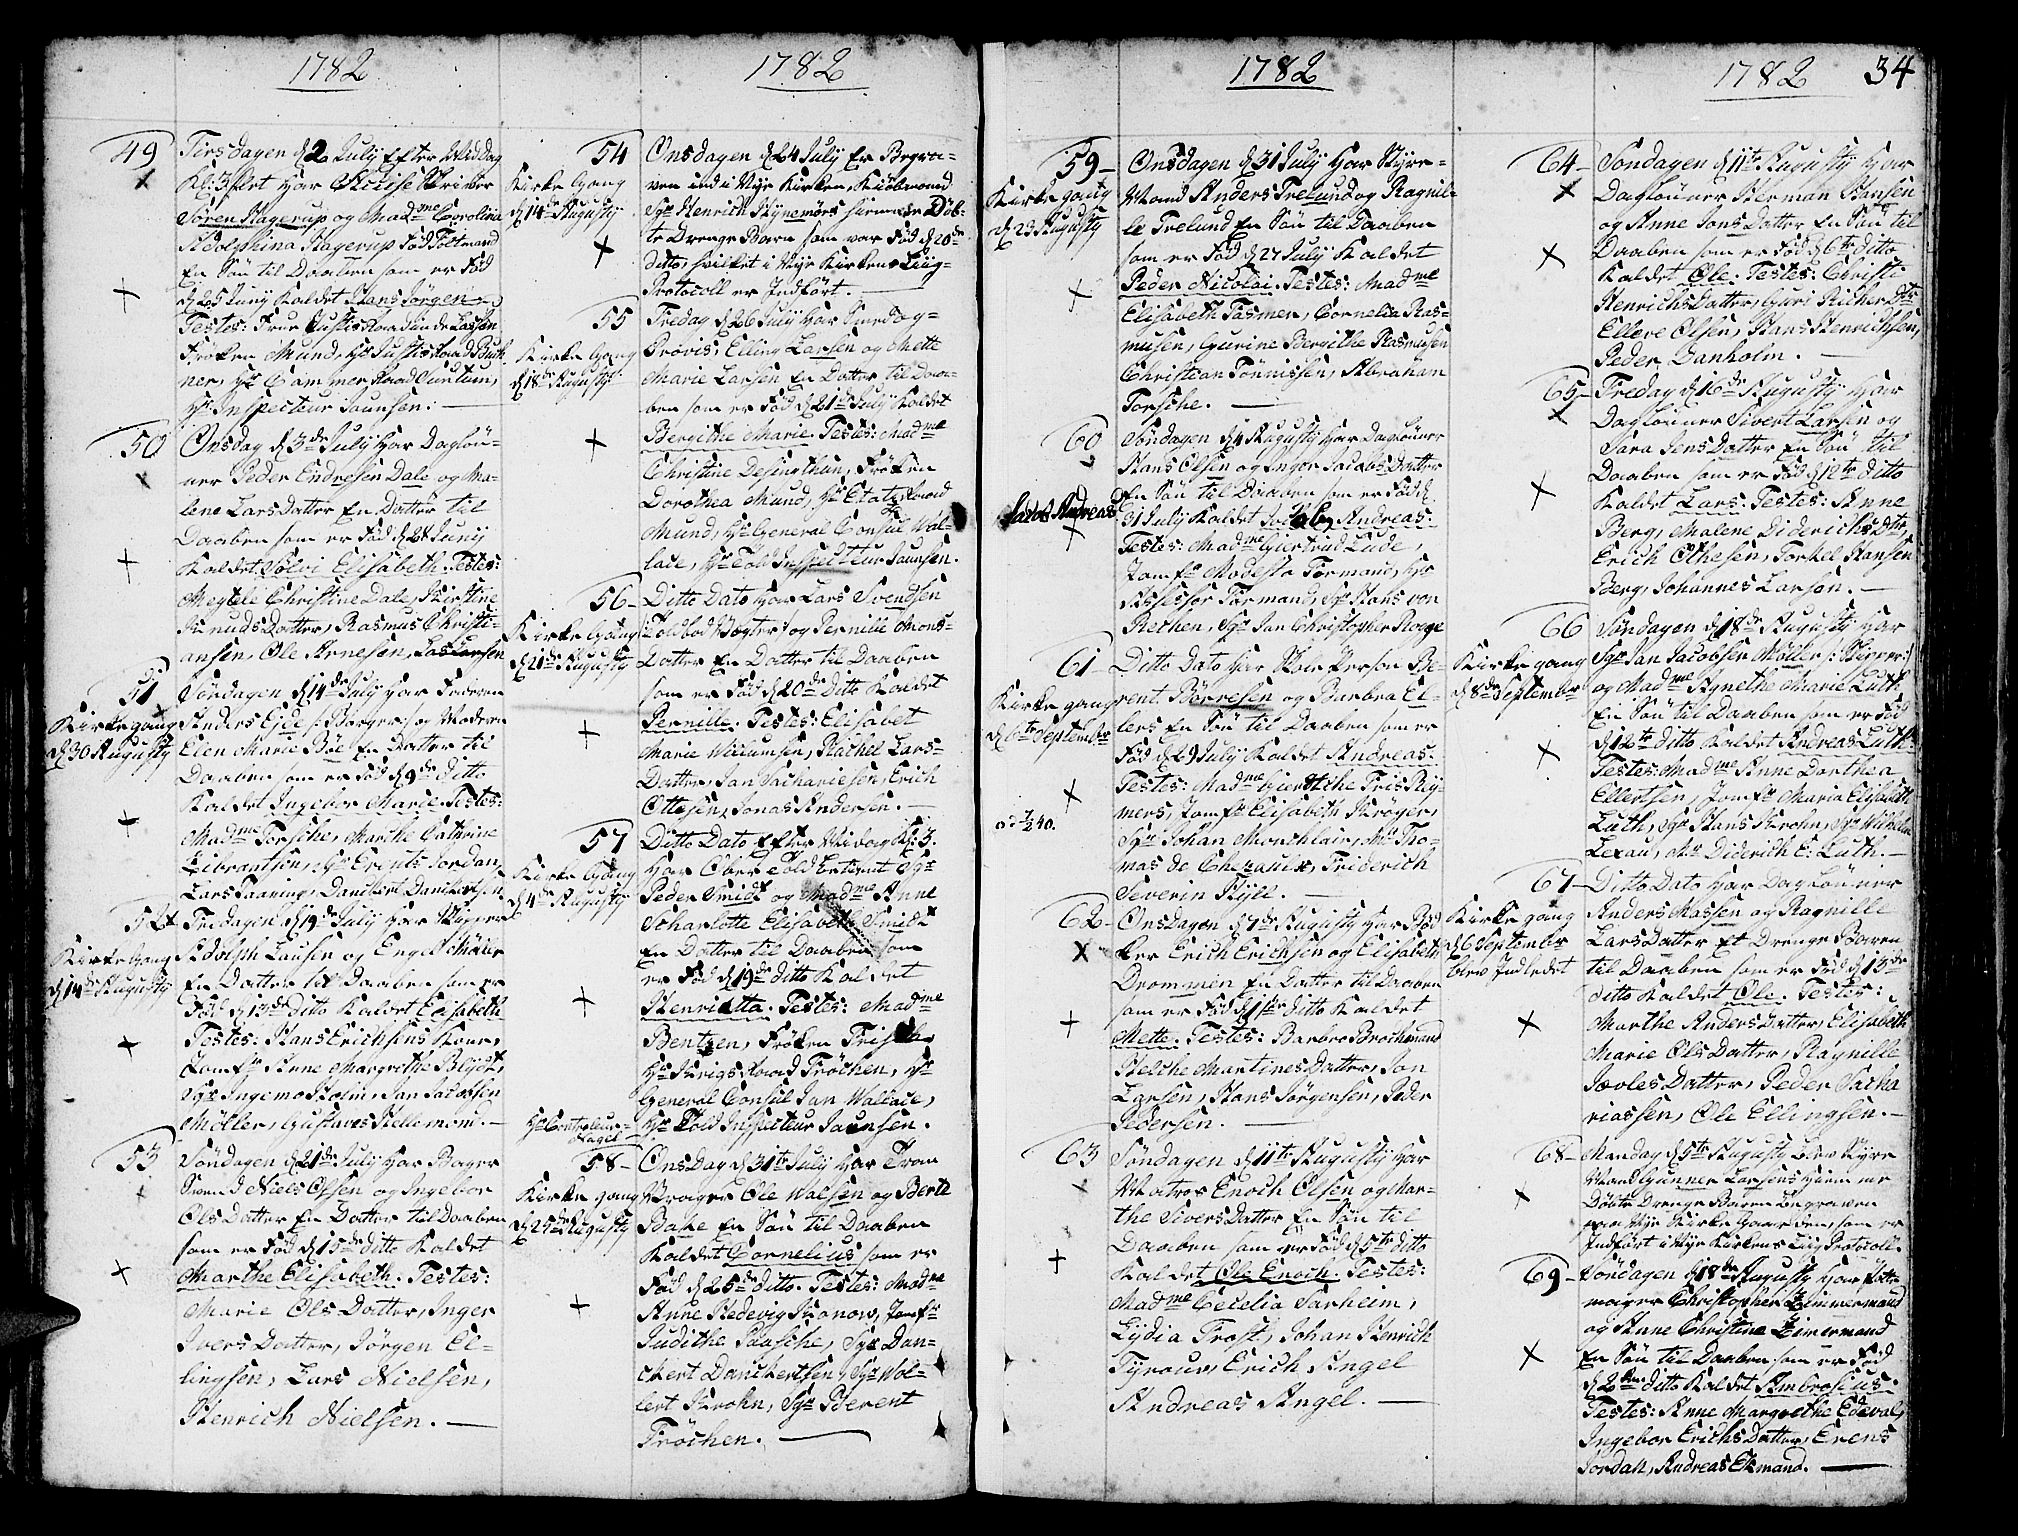 1782
49
Tirsdagen d 2 July Efter Middag
Kl: 3 slet har
Søren Hagerup og Madme Carolina
Adolphina Hagerup Fød Foltmand
En Søn til Daaben som er Fød
d 25 Juny Kaldet Hans Jørgen
Testes: Frue Justisraadinde Lassen
Frøken Mund, Hr Justisraad Buch
ner, Hr Cammer Raad
Hr Inspecteur Jaunsen: —
50
Onsdag d 3de July har Dagløn-
ner Peder Endresen Dale og Ma-
lene Lars datter En Datter til
Daaben som er Fød d 28 Juny
Kaldet Sølvi Elisabeth. Testes:
Megtele Christine Dale, Kirstine
Knuds Datter, Rasmus Christi-
ansen, Ole Arnesen, Larsen
51
Kirke gang
d 30 Augusty
Søndagen d 14de July har Faderen
Anders Ejde /: Borger :/ og Moderen
Elen Marie Böe En Datter til
Daaben som er Fød d 9de ditto
Kaldet Ingebor Marie. Testes:
Madme Forsche, Marthe Cathrine
Librantsen, Hr Erents Jordan,
Lars Faaring, Danchert Danchertsen
52
Kirke Gang
d 14de Augusty
Fredagen d 19de July har Skipper
Adolph Lausen og Engel Møller
En Datter til Daaben som er
Fød d 13de ditto Kaldet Elisabeth
Testes: Hans Erichsens Kone,
Jomfr Anne Margrethe Blydt,
Sgr Ingemo Holm, Jan Jacobsen
Møller, Gustaves Hellemom. —
53
Søndagen d 21de July har Bager
Svend Niels Olsen og Ingebor
Ols Datter En Datter til Daaben
som er Fød d 15de ditto Kaldet
Marthe Elisabeth. Testes:
Marie Ols Datter, Inger
Ivers Datter, Jørgen El-
lingsen, Lars Nielsen,
Henrich Nielsen. —
1782
54
Kirke Gang
d 14de Augusty
Onsdagen d 24 July Er Begra-
ven ind i Nye Kirken, Kiøbmand
Sgr Henrich Hynemørs hiemme Døb-
te Drenge Barn som var Fød d 20de
ditto, hvilket i Nye Kirkens Liig-
Protocoll er Indført. —
55
Kirke Gang
d 18de Augusty
Fredag d 26 July har Smedog-
Prøvis, Elling Larsen og Mette
Marie Larsen En Datter til Daa-
ben som er Fød d 21de July Kaldet
Bergithe Marie. Testes: Madme
Christine Desingthun, Frøken
Dorothea Mund, Hr Etatz Raad
Mund, Hr General Consul Wal-
lace, Hr Told Inspecteur Jaunsen.
56
Kirke Gang
d 21de Augusty
Ditto Dato har Lars Svendsen
/:Toldbod Vogter:/ og Pernille Mons-
Datter En Datter til Daaben
som er Fød d 20de ditto Kaldet
Pernille. Testes: Elisabet
Marie Willumsen, Rachel Lars-
Datter, Jan Sachariesen, Erich
Ottesen, Jonas Andersen. —
57
Kirke Gang
d 4de Augusty
Ditto Dato Efter Midag Kl: 3.
har Ober Told Betient Sgr
Peder Smidt og Madme Anne
Scharlotte Elisabeth Smidt
En Datter til Daaben som
er Fød d 19de ditto Kaldet
Henrietta. Testes: Madme
Bentzen, Frøken Frisch,
Hr Krigs Raad Frøchen, Hr
General Consul Jan Wallace,
Hr Controleur Nagel
Hr Told Inspecteur Jaunsen.
58
Kirke gang
d 25de Augusty
Onsdag d 31te July har Tran
Brager Ole Walsen og Berte
Bahe En Søn til Daaben
Kaldet Cornelius som er
Fød d 25de ditto. Testes: Madme
Anne Hedevig Konow, Jomfr
Judithe Paasche, Sgr Dan-
chert Danchertsen, Sgr Wol-
lert Krohn, Sgr Berent
Frøchen. —
1782
59
Kirke gang
d 23 Augusty
Onsdagen d 31 July har Styre-
Mand Anders Trelund og Ragnil-
le Trelund En Søn til Daaben
som er Fød d 27 July Kaldet
Peder Nicolai. Testes: Madme
Elisabeth Fasmer, Cornelia Ras-
musen, Gurine Bergithe Rasmusen
Christian Tønnissen, Abraham
Forsche. —
60
Jacob Andreas
Søndagen d 4 Augusty har Dagløner
Hans Olsen og Inger Jacobs Datter
En Søn til Daaben som er Fød d
31 July Kaldet Jacob, Andreas.
Testes: Madme Giertrud Lude,
Jomfr Modesta Formand, Hr
Assessor Formand, Sgr Hans von
Rethen, Sgr Jan Christopher Stoege
61
Kirke gang
d 6te September
Ditto Dato har Skoe Person Be-
rent Børresen og Barbra El-
lers En Søn til Daaben som er
Fød d 29 July Kaldet Andreas.
Testes: Madme Giertche Fris Rij-
mers, Jomfr Elisabeth Krøger,
Sgr Johan Monchlair, Mr Tho-
mas de Chezaulx, Friderich
Severin Hyll. —
62
Onsdagen d 7de Augusty har Bød
ker Erich Erichsen og Elisabeth
Drommen En Datter til Daaben
som er Fød d 1ste ditto Kaldet
Mette. Testes: Barbro Brochmand
Helche Martines Datter, Jon
Larsen, Hans Jørgensen, Peder
Pedersen. —
63
Søndagen d 11te Augusty har
Matros Enoch Olsen og Mar-
the Sivers Datter En Søn til
Daaben som er Fød d 5te ditto
Kaldet Ole Enoch. Testes:
Madme Cecelia Sarheim,
Lydia Frost, Johan Henrich
Tyrour, Erich Angel
Andreas Angel. —
1782
34
64
Søndagen d 11te Augusty har
Dagløner Herman Hansen
og Anne Jons Datter En Søn til
Daaben som er Fød d 6te ditto
Kaldet Ole. Testes: Christi
Henrichs Datter, Guri Richer Dtr
Elleve Olsen, Hans Henrichsen,
Peder Danholm. —
65
Fredag d 16de Augusty har
Dagløner Sivert Larsen og
Sara Jens Datter En Søn til
Daaben som er Fød d 12te ditto
Kaldet Lars. Testes: Anne
Berg, Malene Diderichs Dtr,
Erich Othesen, Torkel Hansen
Berg, Johannes Larsen. —
66
Kirke gang
d 8de September
Søndagen d 18de Augusty har
Sgr Jan Jacobsen Møller /: Skipper:/
og Madme Agnethe Marie Luth
En Søn til Daaben som er Fød
d 12te ditto Kaldet Andreas Luth.
Testes: Madme Anne Dorthea
Ellertsen, Jomfr Maria Elisabeth
Luth, Sgr Hans Krohn, Sgr Wilhelm
Lexau, Mr Diderich C: Luth. —
67
Kirke gang
d 6 September
blev Indledet
Ditto Dato har Dagløner
Anders Massen og Ragnille
Lars Datter Et Drenge Baren
til Daaben som er Fød d 13de
ditto Kaldet Ole. Testes:
Marthe Anders Datter, Elisabeth
Marie Ols Datter, Ragnille
Jools Datter, Peder Sacha
riassen, Ole Ellingsen. —
68
Mandag d 5te Augusty blev Styre
Mand Gunner Larsens hiemme
Døbte Drenge Baren Begraven
paa Nye Kirke Gaarden, som er
Indført i Nye Kirkens Liig Protocoll.
69
Søndagen d 18de Augusty har Potte-
mager Christopher Zimmermand
og Anne Christine Zimermand
En Søn til Daaben som er Fød
d 2den ditto Kaldet Ambrosius.
Testes: Anne Margrethe Edeval,
Ingebor Erichs Datter, Erens
Jordan, Andreas Ekmand. —